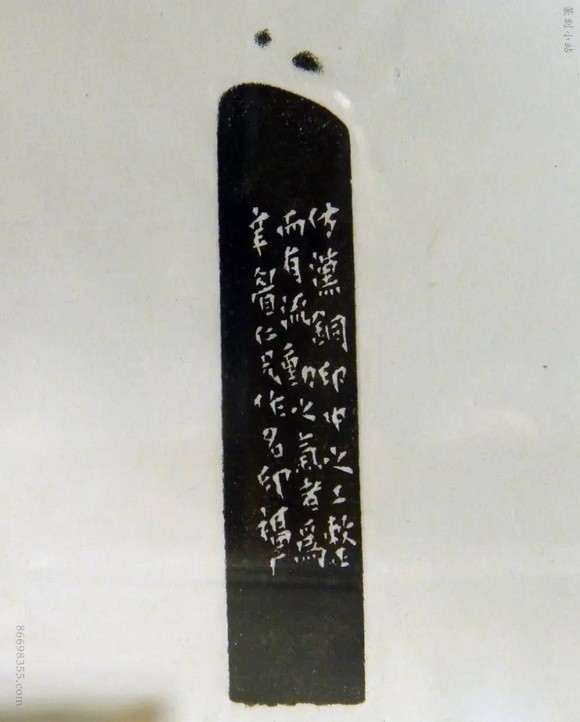 仿漢銅印中之工整
而有流動之氣者為
仁兄作名印福厂
篆刻小站
86698355.com